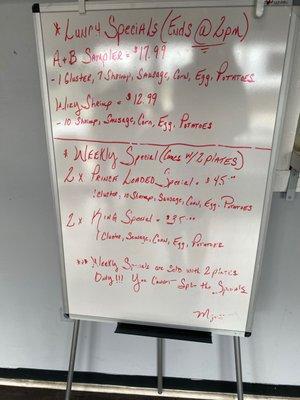 * Luxury Specials (Ends @ 2pm)
A+B Sampler = $17.99
- 1 Cluster, 7 Shrimp, Sausage, Corn, Egg, Potatoes
Shrimp = $12.99
- 10 Shrimp, Sausage, Corn, Egg, Potatoes
* Weekly Special (Comes w/ 2 plates)
2 x Prince Loaded Special = $45.00
1 Cluster, 10 Shrimp, Sausage, Corn, Egg, Potatoes
2 x King Special = $35.00
1 Cluster, Sausage, Corn, Egg, Potatoes
*** Weekly Specials are sold with 2 plates
Only!!! You cannot Split the Specials